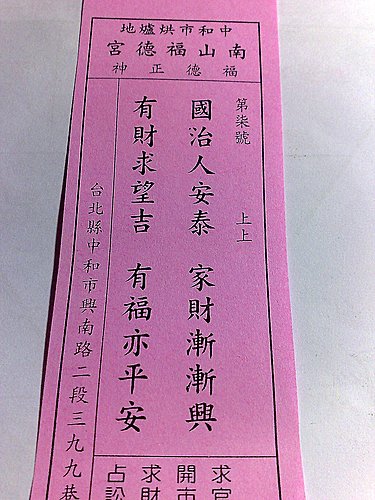 中和市烘爐地
南山福德宮
福德正神
第柒號 上上
國治人安泰 家財漸漸興
有財求望吉 有福亦平安
台北縣中和市興南路二段三九九巷
求官
開市
求財
占訟